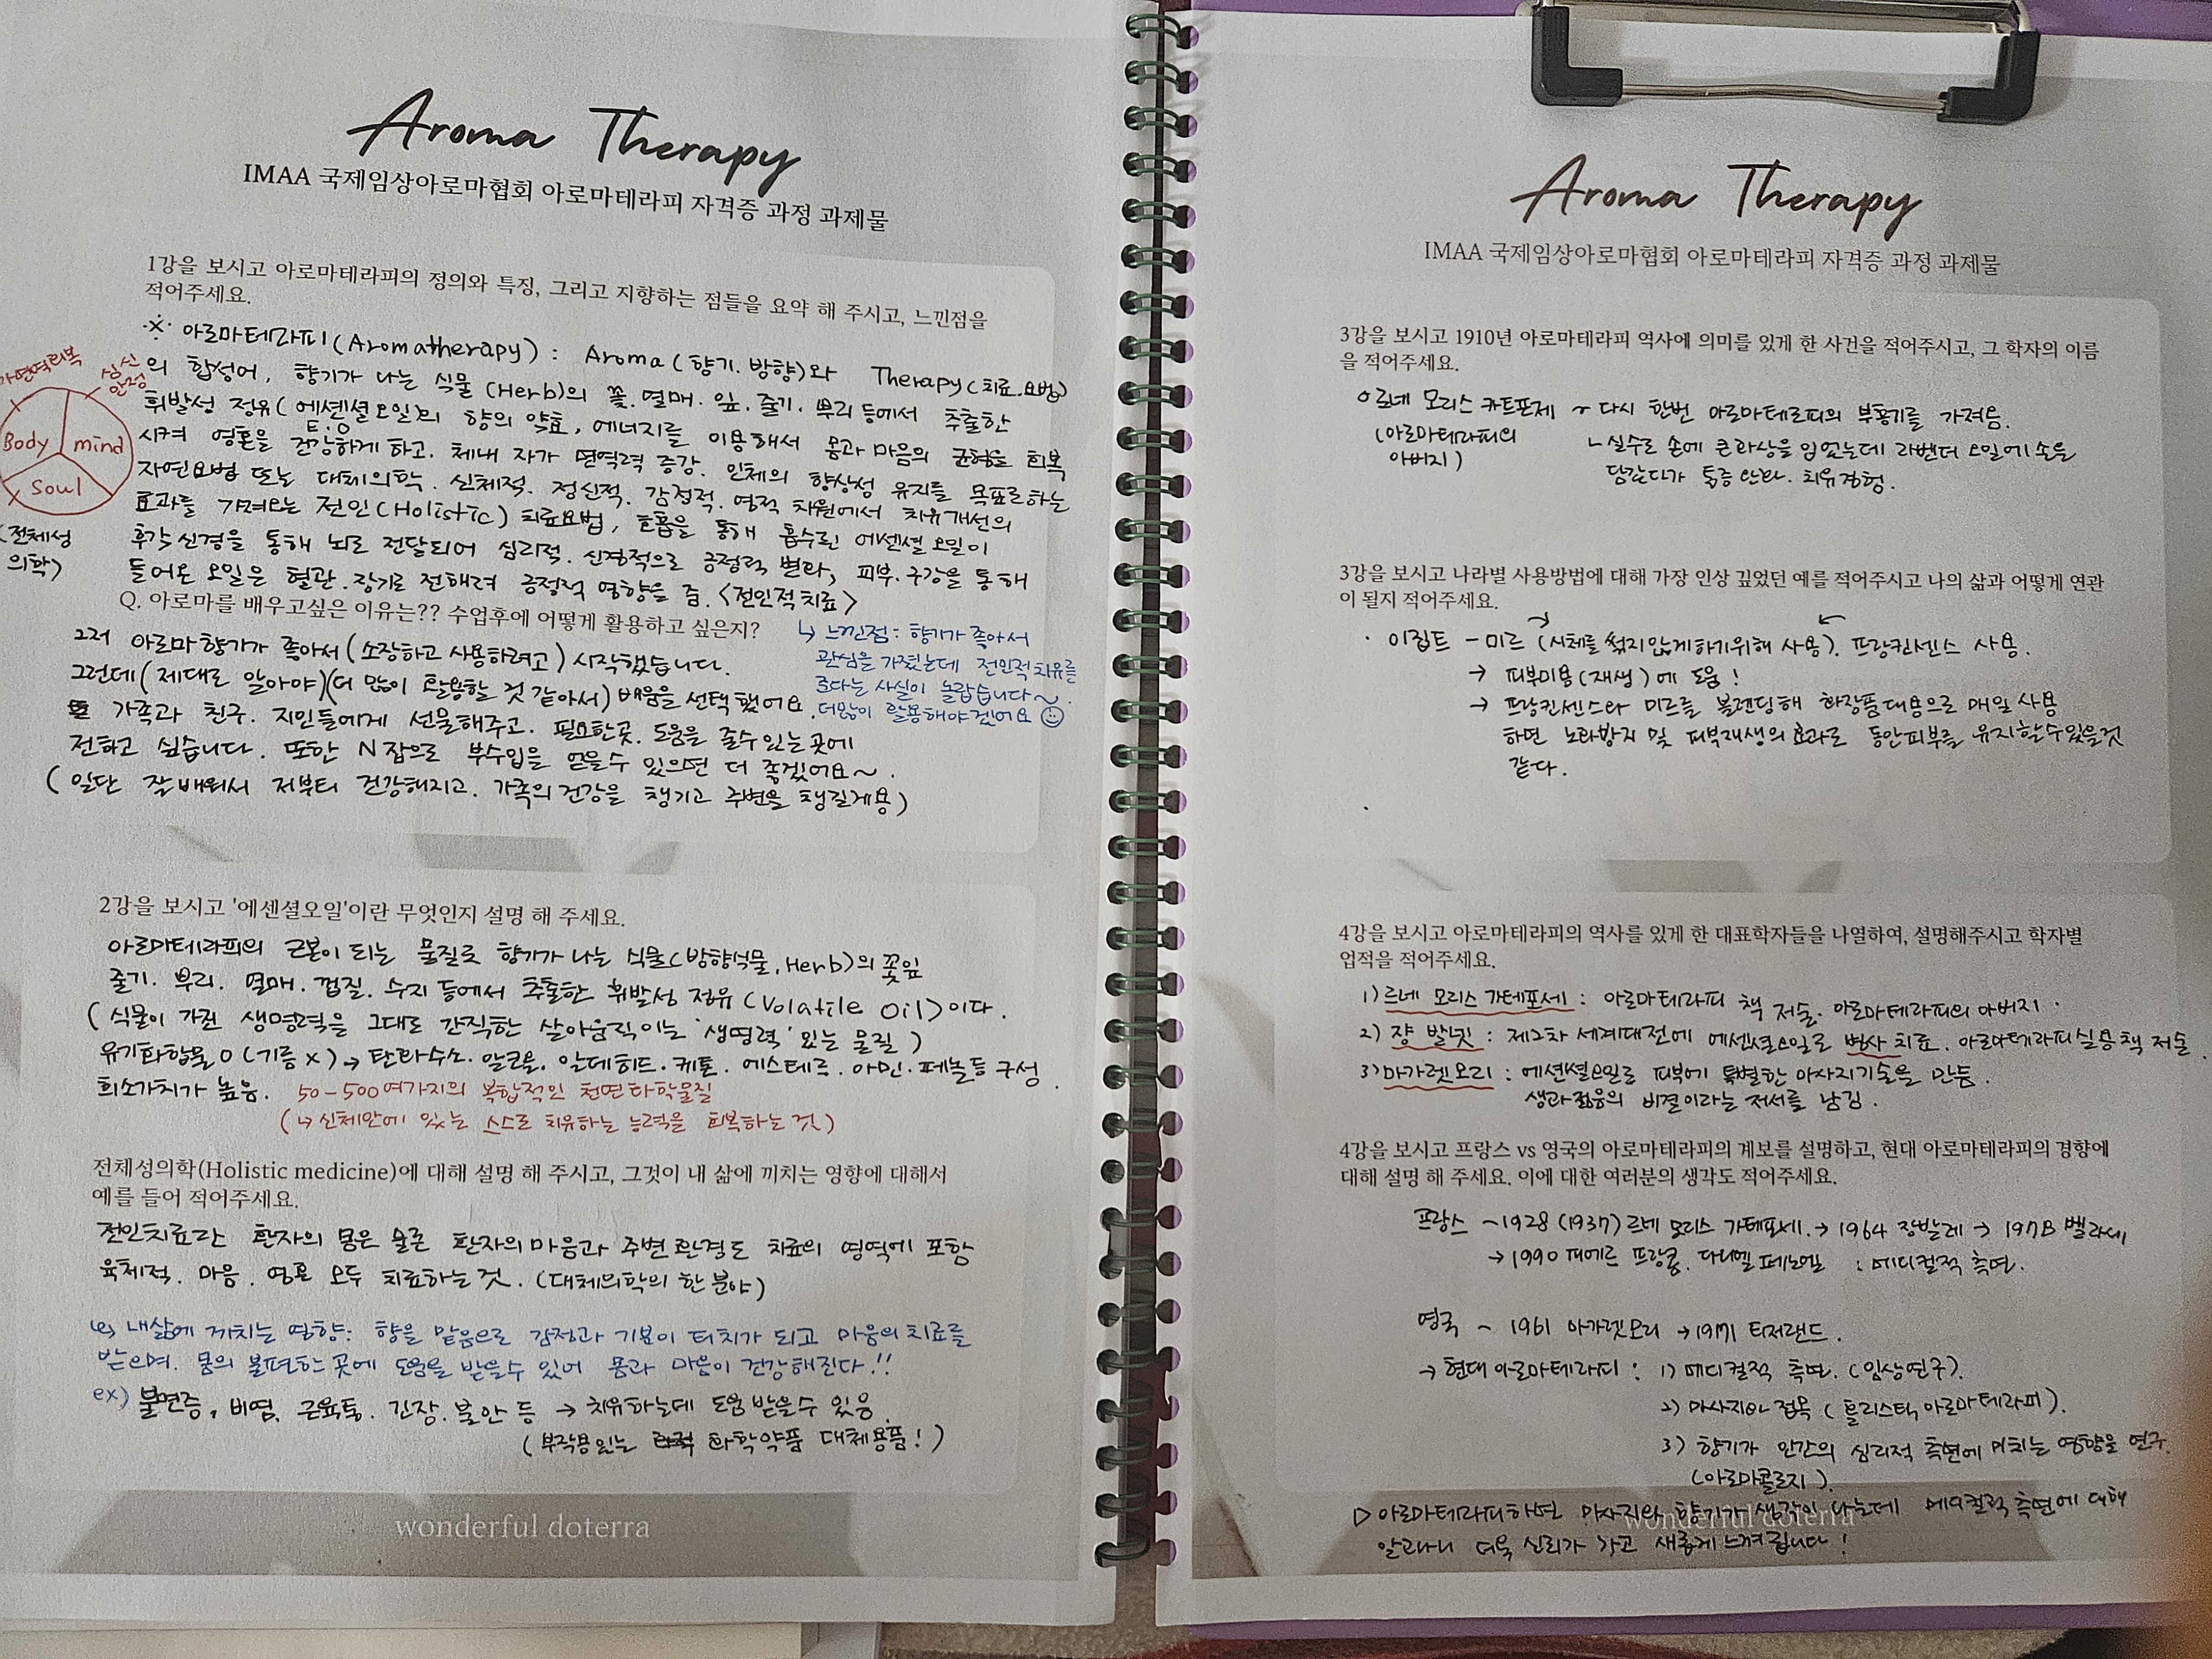 Aroma Therapy
IMAA 국제임상아로마협회 아로마테라피 자격증 과정 과제물
1강을 보시고 아로마테라피의 정의와 특징, 그리고 지향하는 점들을 요약 해 주시고, 느낀점을
적어주세요.
※ 아로마테라피(Aromatherapy) : Aroma(향기.방향)와 Therapy(치료.요법)
의 합성어, 향기가 나는 식물(Herb)의 꽃.열매.잎.줄기.뿌리 등에서 추출한
휘발성 정유(에센셜오일)의 향의 약효, 에너지를 이용해서 몸과 마음의 균형을 회복
E.O
시켜 영혼을 건강하게 하고. 체내 자가 면역력 증강. 인체의 항상성 유지를 목표로하는
자연요법 또는 대체의학. 신체적. 정신적. 감정적. 영적 차원에서 치유개선의
효과를 가져오는 전인(Holistic) 치료요법, 호흡을 통해 흡수된 에센셜 오일이
후각신경을 통해 뇌로 전달되어 심리적. 신경적으로 긍정적 변화, 피부.구강을 통해
들어온 오일은 혈관.장기로 전해져 긍정적 영향을 줌. <전인적치료>
자가면역회복
심신
안정
Body
mind
Soul
(전체성
의학)
Q. 아로마를 배우고싶은 이유는?? 수업후에 어떻게 활용하고 싶은지?
그저 아로마향기가 좋아서(소장하고 사용하려고) 시작했습니다.
그런데(제대로 알아야)(더 많이 활용할 것 같아서) 배움을 선택했어요.
가족과 친구. 지인들에게 선물해주고. 필요한곳. 도움을 줄수있는곳에
전하고 싶습니다. 또한 N잡으로 부수입을 얻을수 있으면 더 좋겠어요~.
(일단 잘배워서 저부터 건강해지고. 가족의건강을 챙기고 주변을 챙길게용)
↳ 느낀점: 향기가 좋아서
관심을 가졌는데 전인적치유를
준다는 사실이 놀랍습니다~.
더많이 활용해야겠어요 ☺
2강을 보시고 '에센셜오일'이란 무엇인지 설명 해 주세요.
아로마테라피의 근본이 되는 물질로 향기가 나는 식물(방향식물,Herb)의 꽃잎
줄기. 뿌리. 열매. 껍질. 수지 등에서 추출한 휘발성 정유(Volatile Oil)이다.
(식물이 가진 생명력을 그대로 간직한 살아움직이는 '생명력'있는 물질)
유기화합물 O (기름X) → 탄화수소. 알코올. 알데히드.케톤. 에스테르. 아민.페놀등 구성.
희소가치가 높음. 50-500여가지의 복합적인 천연화학물질
(↳신체안에 있는 스스로 치유하는 능력을 회복하는 것)
전체성의학(Holistic medicine)에 대해 설명 해 주시고, 그것이 내 삶에 끼치는 영향에 대해서
예를 들어 적어주세요.
전인치료란 환자의 몸은 물론 환자의마음과 주변환경도 치료의 영역에 포함
육체적. 마음. 영혼 모두 치료하는것. (대체의학의 한분야)
↳ 내삶에 끼치는 영향: 향을 맡음으로 감정과 기분이 터치가 되고 마음의치료를
받으며. 몸의 불편한 곳에 도움을 받을수 있어 몸과 마음이 건강해진다!!
ex) 불면증, 비염, 근육통. 긴장.불안 등 → 치유하는데 도움 받을수 있음.
(부작용있는 화학약품 대체용품!)
wonderful doterra
Aroma Therapy
IMAA 국제임상아로마협회 아로마테라피 자격증 과정 과제물
3강을 보시고 1910년 아로마테라피 역사에 의미를 있게 한 사건을 적어주시고, 그 학자의 이름
을 적어주세요.
○ 르네 모리스 카트포제 ~ 다시 한번 아로마테르피의 부흥기를 가져옴.
(아로마테라피의
아버지)
↳실수로 손에 큰화상을 입었는데 라벤더 오일에 손을
담갔다가 통증완화. 치유경험.
3강을 보시고 나라별 사용방법에 대해 가장 인상 깊었던 예를 적어주시고 나의 삶과 어떻게 연관
이 될지 적어주세요.
· 이집트 - 미르 (시체를 썩지않게하기위해 사용). 프랑킨센스 사용.
→ 피부미용(재생)에 도움!
→ 프랑킨센스와 미르를 블렌딩해 화장품대용으로 매일 사용
하면 노화방지 및 피부재생의 효과로 동안피부를 유지할수있을것
같다.
4강을 보시고 아로마테라피의 역사를 있게 한 대표학자들을 나열하여, 설명해주시고 학자별
업적을 적어주세요.
1) 르네 모리스 가테포세 : 아로마테라피 책 저술. 아로마테라피의 아버지.
2) 쟝 발넷 : 제2차 세계대전에 에센셜오일로 병사 치료. 아로마테라피실용책 저술.
3) 마가렛모리 : 에센셜오일로 피부에 특별한 마사지기술을 만듬.
생과젊음의 비결이라는 저서를 남김.
4강을 보시고 프랑스 vs 영국의 아로마테라피의 계보를 설명하고, 현대 아로마테라피의 경향에
대해 설명 해 주세요. 이에 대한 여러분의 생각도 적어주세요.
프랑스 ~1928 (1937) 르네 모리스 가테포세. → 1964 장발레 → 1978 벨라세
→ 1990 피에르 프랑콤. 다니엘 페노엘 : 메디컬적 측면.
영국 ~ 1961 마가렛모리 → 1977 티저랜드.
→ 현대 아로마테라피 : 1) 메디컬적 측면. (임상연구).
2) 마사지와 접목 (홀리스틱 아로마테라피).
3) 향기가 인간의 심리적 측면에 미치는 영향을 연구.
(아로마콜로지).
▷ 아로마테라피하면 마사지와 향기가 생각이 나는데 메디컬적 측면에 대해
알고나니 더욱 신뢰가 가고 새롭게 느껴집니다!
wonderful doterra